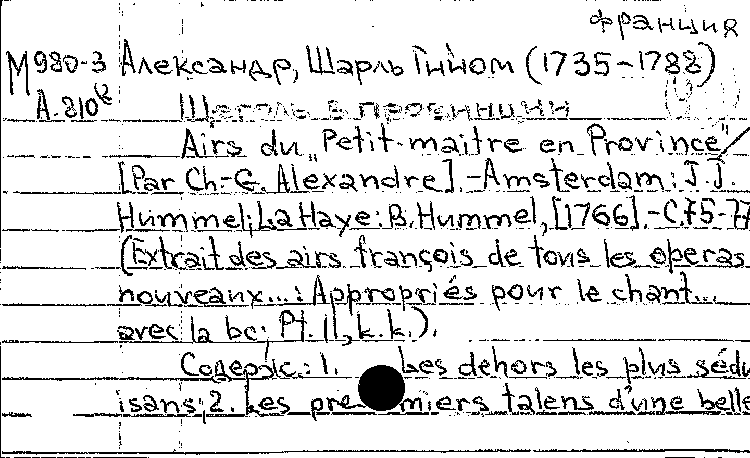 Франция
М980-3 Александр, Шарль Гийом (1735-1788)
А.810 Щеголь в провинции
Airs du „Petit-maitre en Province"
[Par Ch.-G. Alexandre].-Amsterdam: J.J.
Hummel; La Haye: B. Hummel, [1766].-C.75-77
(Extrait des airs françois de tous les operas
nouveaux...: Appropriés pour le chant...
avec la bc; Pt.
Содерж.: 1. Les dehors les plus sédu
isans; 2. Les premiers talens d'une belle